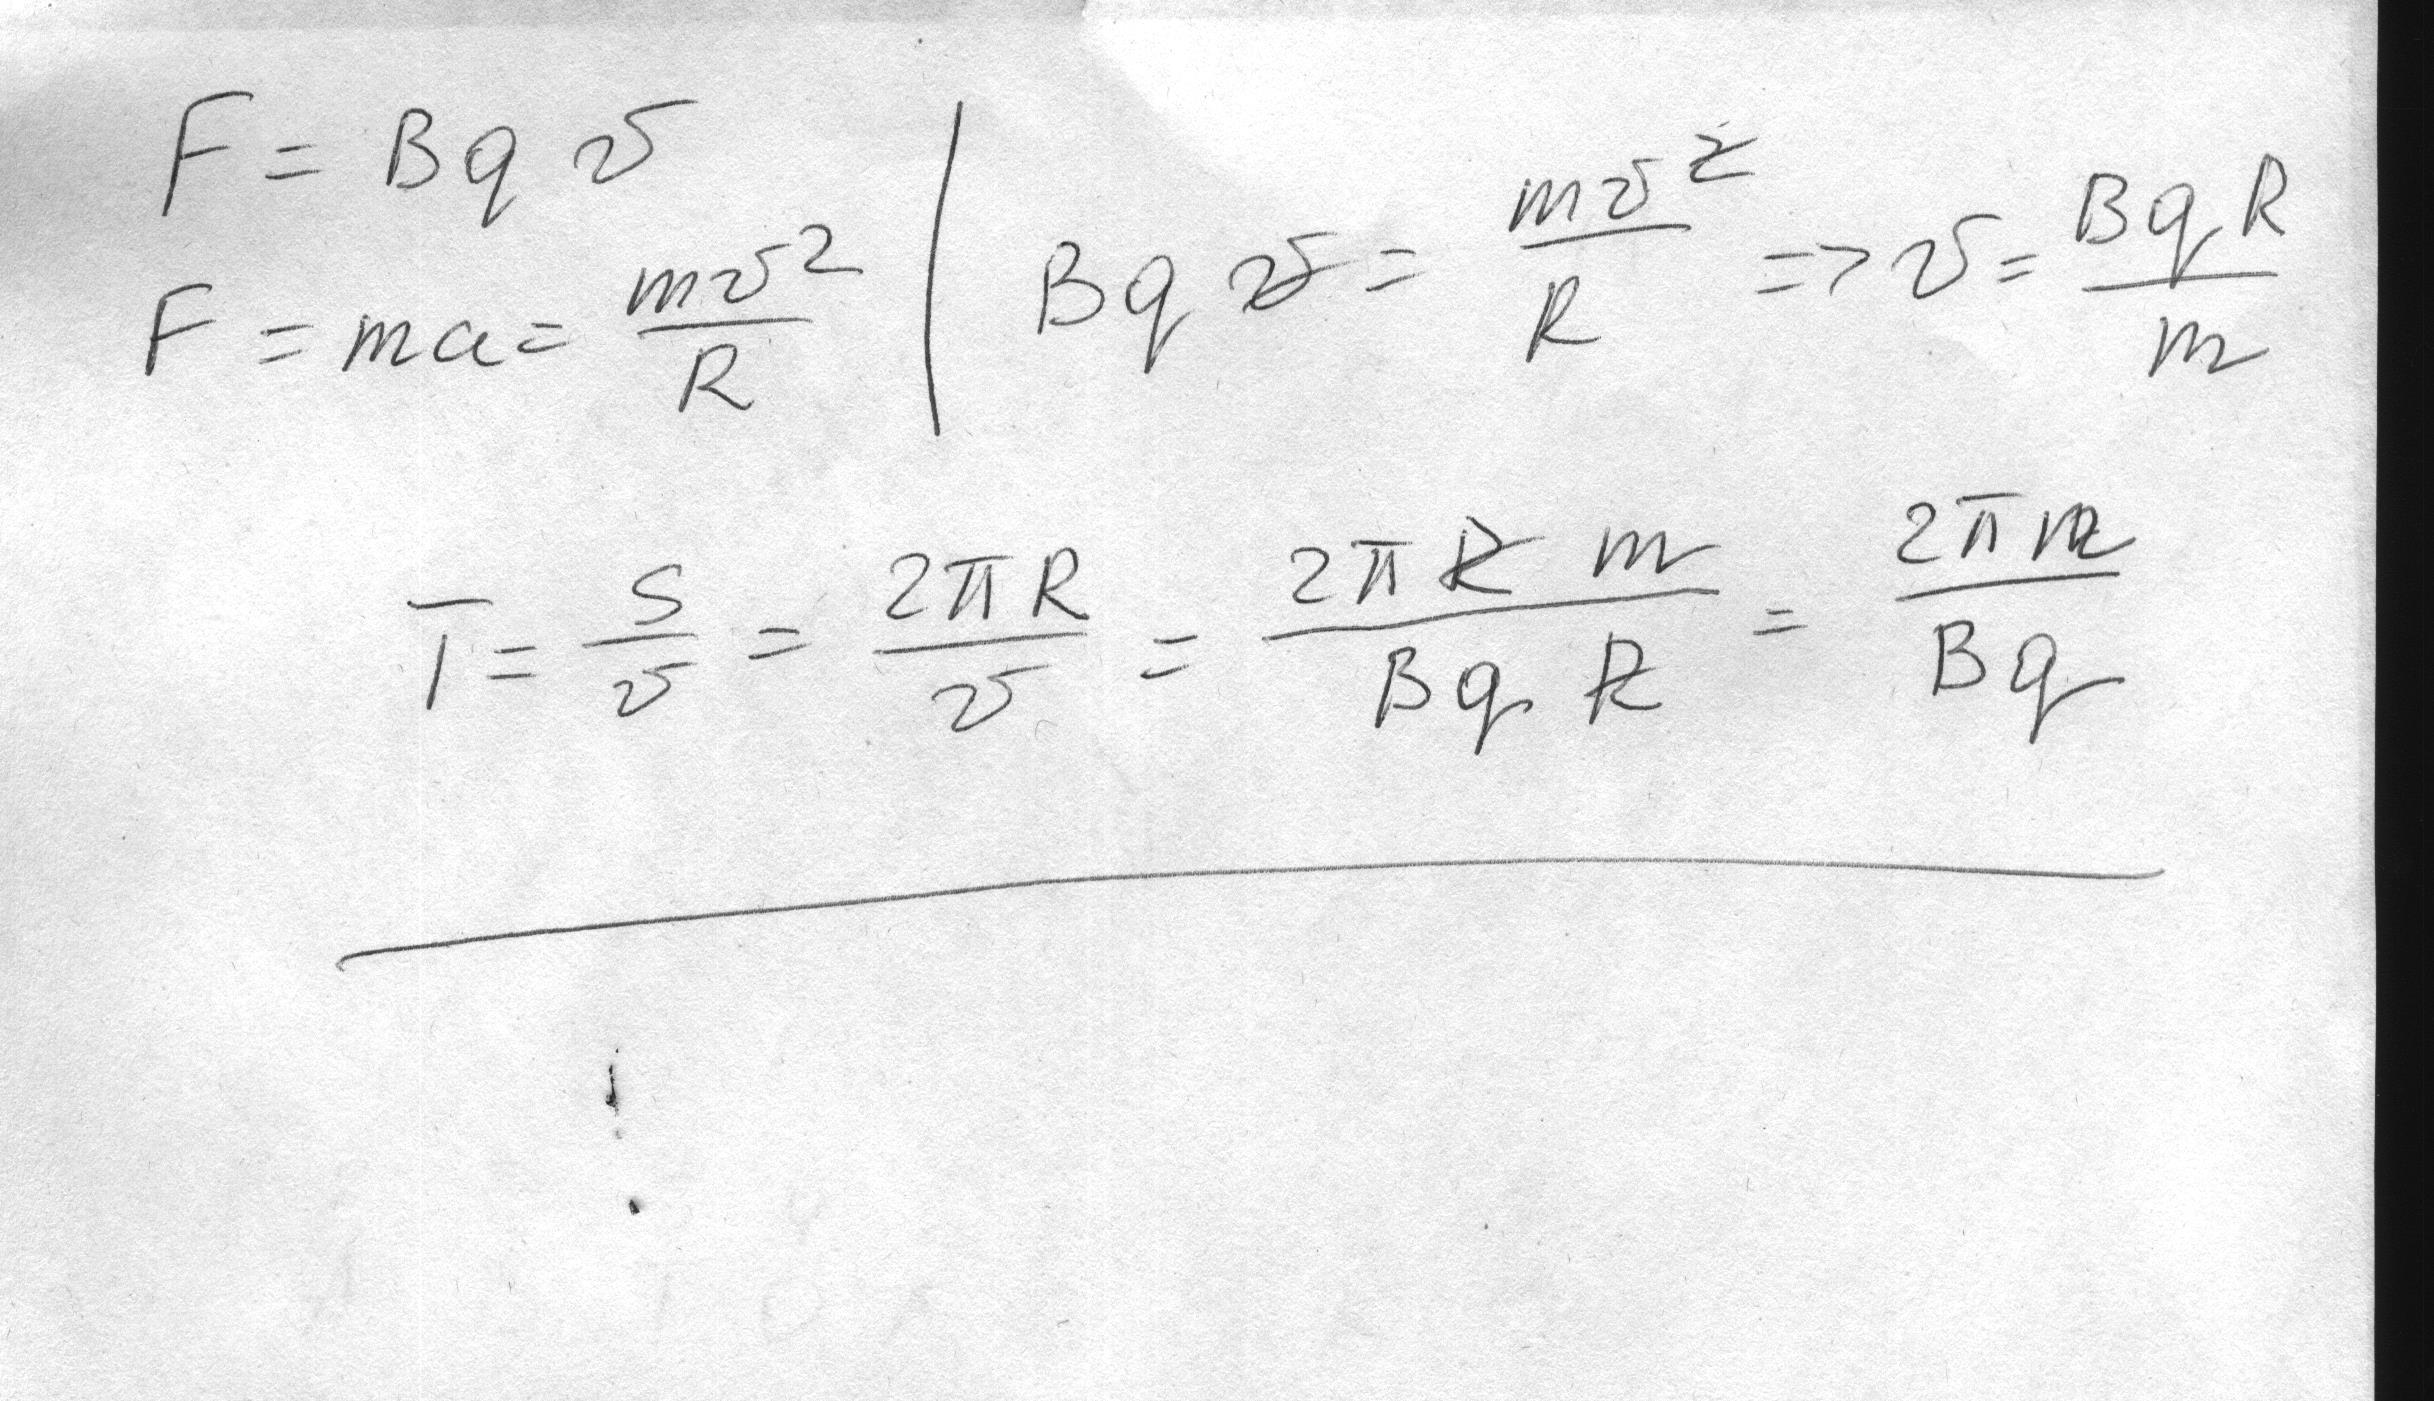 F = Bqv
F = ma = mv²/R | Bqv = mv²/R => v = BqR/m
T = S/v = 2πR/v = 2πRm/BqR = 2πm/Bq